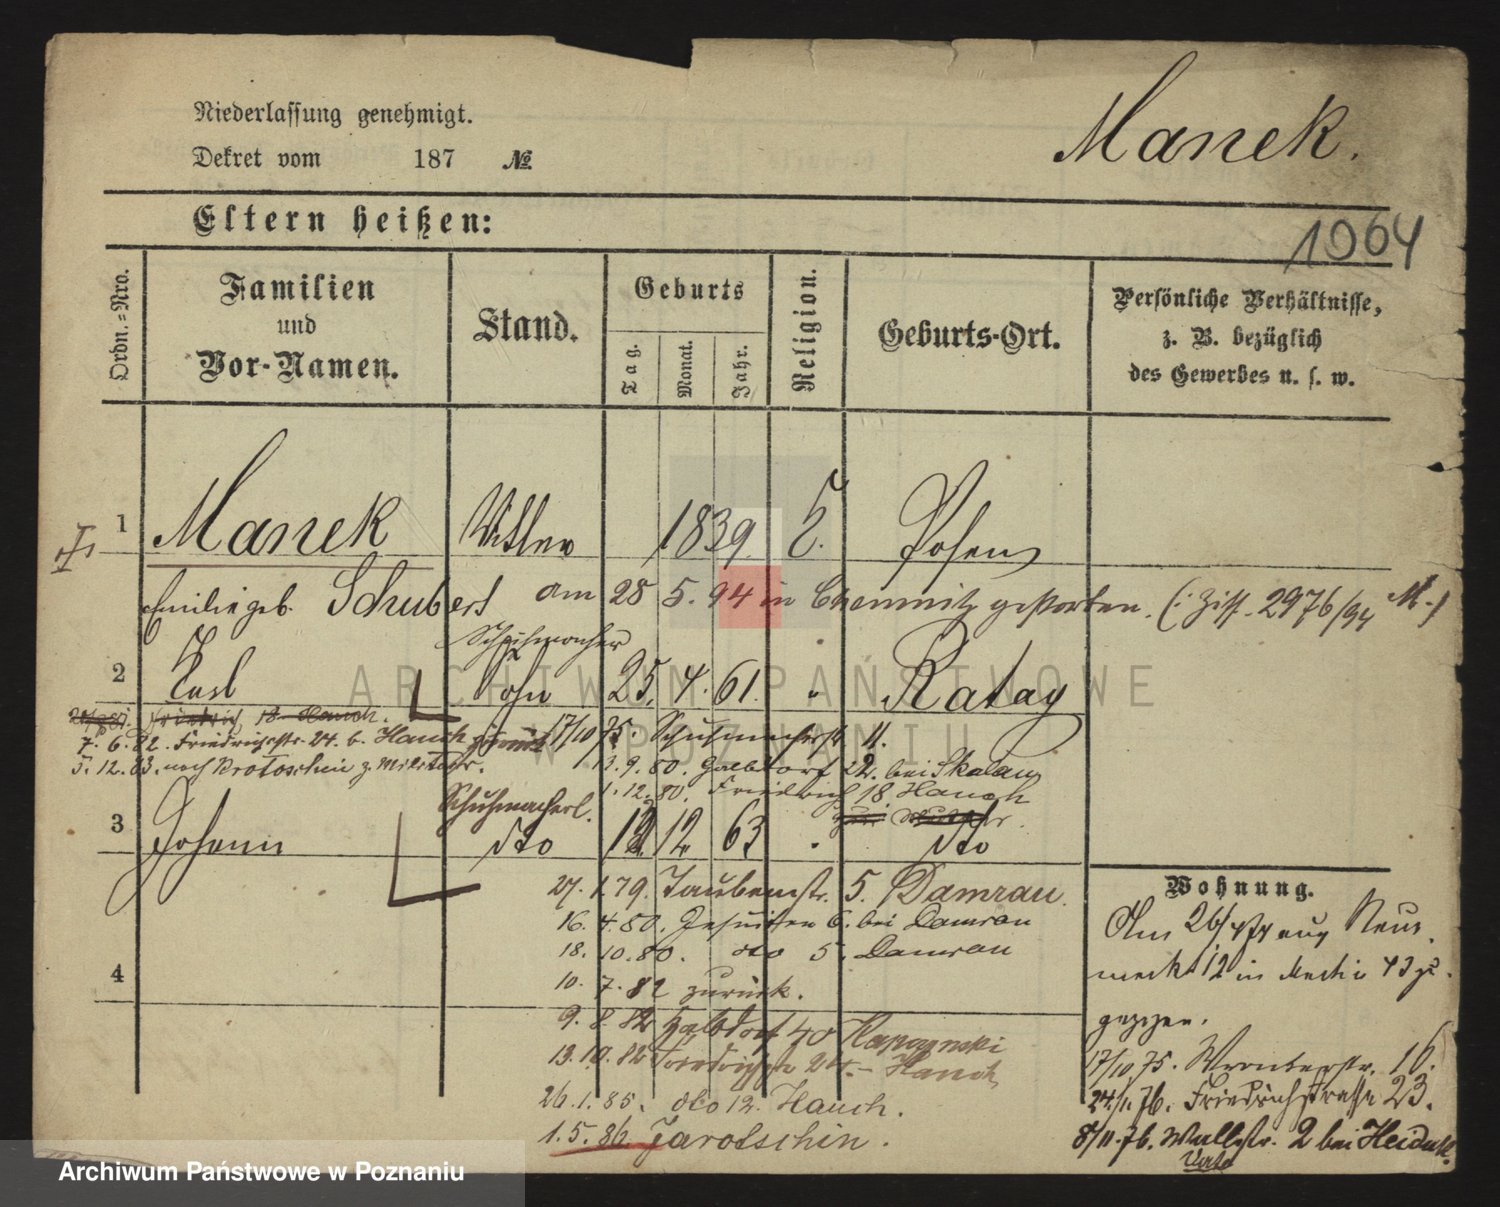 Niederlassung genehmigt.
Dekret vom 187 №
Manek.
1064
Eltern heißen:
Ordn.=Nro.
Familien
und
Vor-Namen.
Stand.
Geburts
Tag.
Monat.
Jahr.
Religion.
Geburts-Ort.
Persönliche Verhältnisse,
z. B. bezüglich
des Gewerbes u. s. w.
1 Manek 1839 Posen
Emilie geb. Schubert am 28 5. 94 in Chemnitz gestorben. (: Ziff. 2976/94 M.)
Schuhmacher
2 Karl Sohn 25. 4. 61. " Ratay
Friedrich 18 Hauch.
7. 6. 82. Friedrichstr. 24. b. Hauch zurück 17/10 75. Schuhmacherstr. 11.
5. 12. 83. nach Krotoschin z. Militär.
13. 9. 80. Halbdorf 22. bei Skalau
1. 12. 80. Friedrich 18 Hauch
Schuhmacherl.
3 Johann dto 12 63 dto
27. 1. 79. Taubenstr. 5. Damrau.
16. 4. 80. Jesuiten 6. bei Damrau
18. 10. 80. dto 5. Damrau
4
10. 7. 82 zurück.
9. 8. 82 Halbdorf 40
13. 10. 82 Friedrichstr. 24. Hauch
26. 1. 85. dto 12. Hauch.
1. 5. 86. Jarotschin.
Wohnung.
Am 26/ Neu
markt 12 in
gezogen.
17/10 75. Wronkerstr. 16.
24/1. 76. Friedrichstrasse 23.
8/11. 76. Wallstr. 2 bei Heiduk.
ARCHIWUM PAŃSTWOWE
W POZNANIU
Archiwum Państwowe w Poznaniu